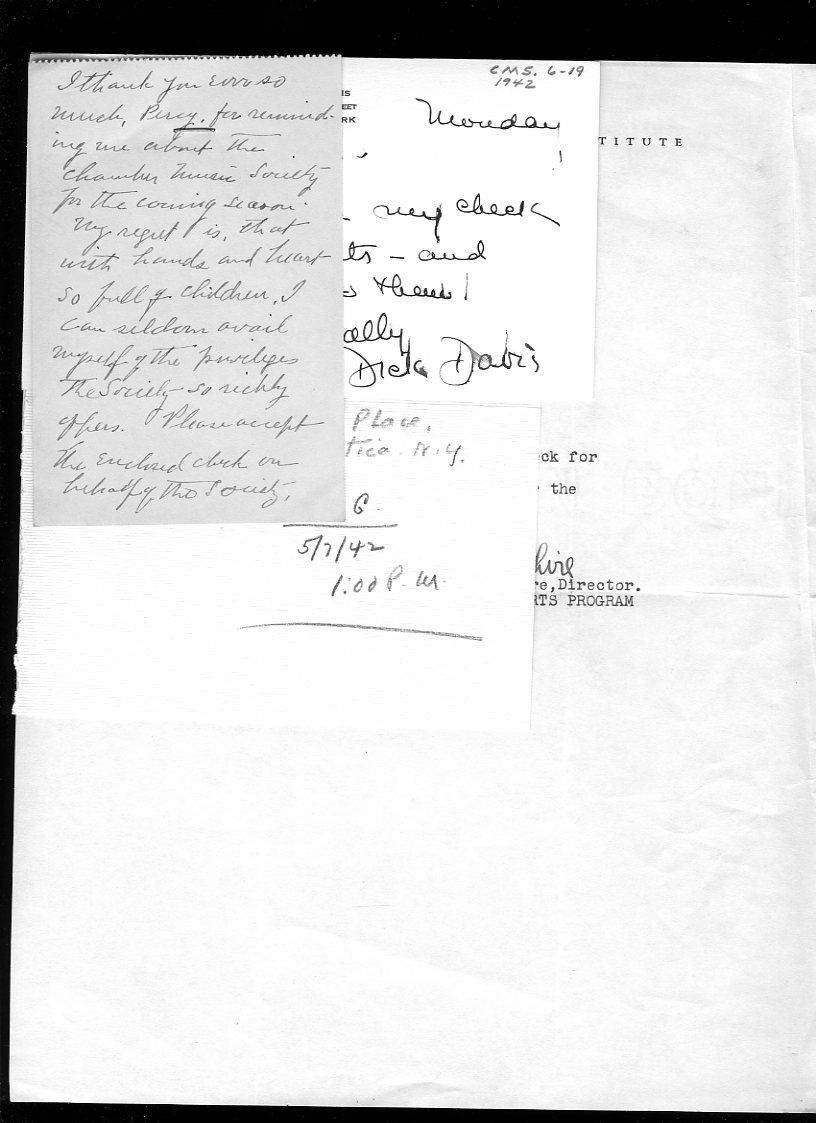 I thank you ever so
much, Percy, for remind-
ing me about the
Chamber Music Society
for the coming season.
My regret is, that
with hands and heart
so full of children, I
can seldom avail
myself of the privileges
the Society so richly
offers. Please accept
the enclosed check on
behalf of the Society.
CMS. 6-19
1942
IS
EET
RK
Monday
my check
ts - and
them!
ally
Dick Davis
Place,
tica. N.Y.
G.
5/7/42
1:00 P.M.
TITUTE
ck for
the
hire
re,Director.
RTS PROGRAM